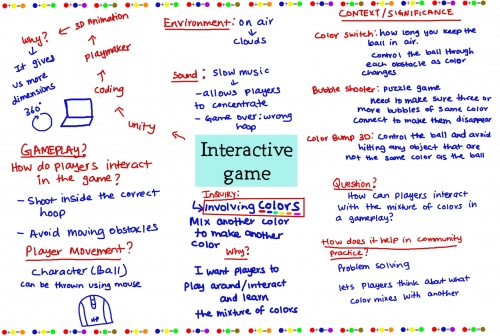 Why?
3D Animation
It gives
us more
dimensions
360°
Playmaker
Coding
Unity
GAMEPLAY?
How do players interact
in the game?
- Shoot inside the correct
hoop
- Avoid moving obstacles
Player Movement?
Character (Ball)
can be thrown using mouse
HP
Environment: on air
clouds
Sound: Slow music
- allows players
to concentrate
- Game over: wrong
hoop
Interactive
game
Inquiry:
Involving Colors
Mix another color
to make another
color
Why?
I want players to
Play around/interact
and learn
the mixture of colors
CONTEXT/SIGNIFICANCE
Color Switch: how long you keep the
ball in air.
Control the ball through
each obstacle as color
changes
Bubble Shooter: Puzzle game
Need to make sure three or
more bubbles of same color
Connect to make them disappear
Color Bump 3D: Control the ball and avoid
hitting any object that are
not the same color as the ball
Question?
How can players interact
with the mixture of colors in
a gameplay?
How does it help in community
practice?
Problem solving
lets Players think about what
color mixes with another